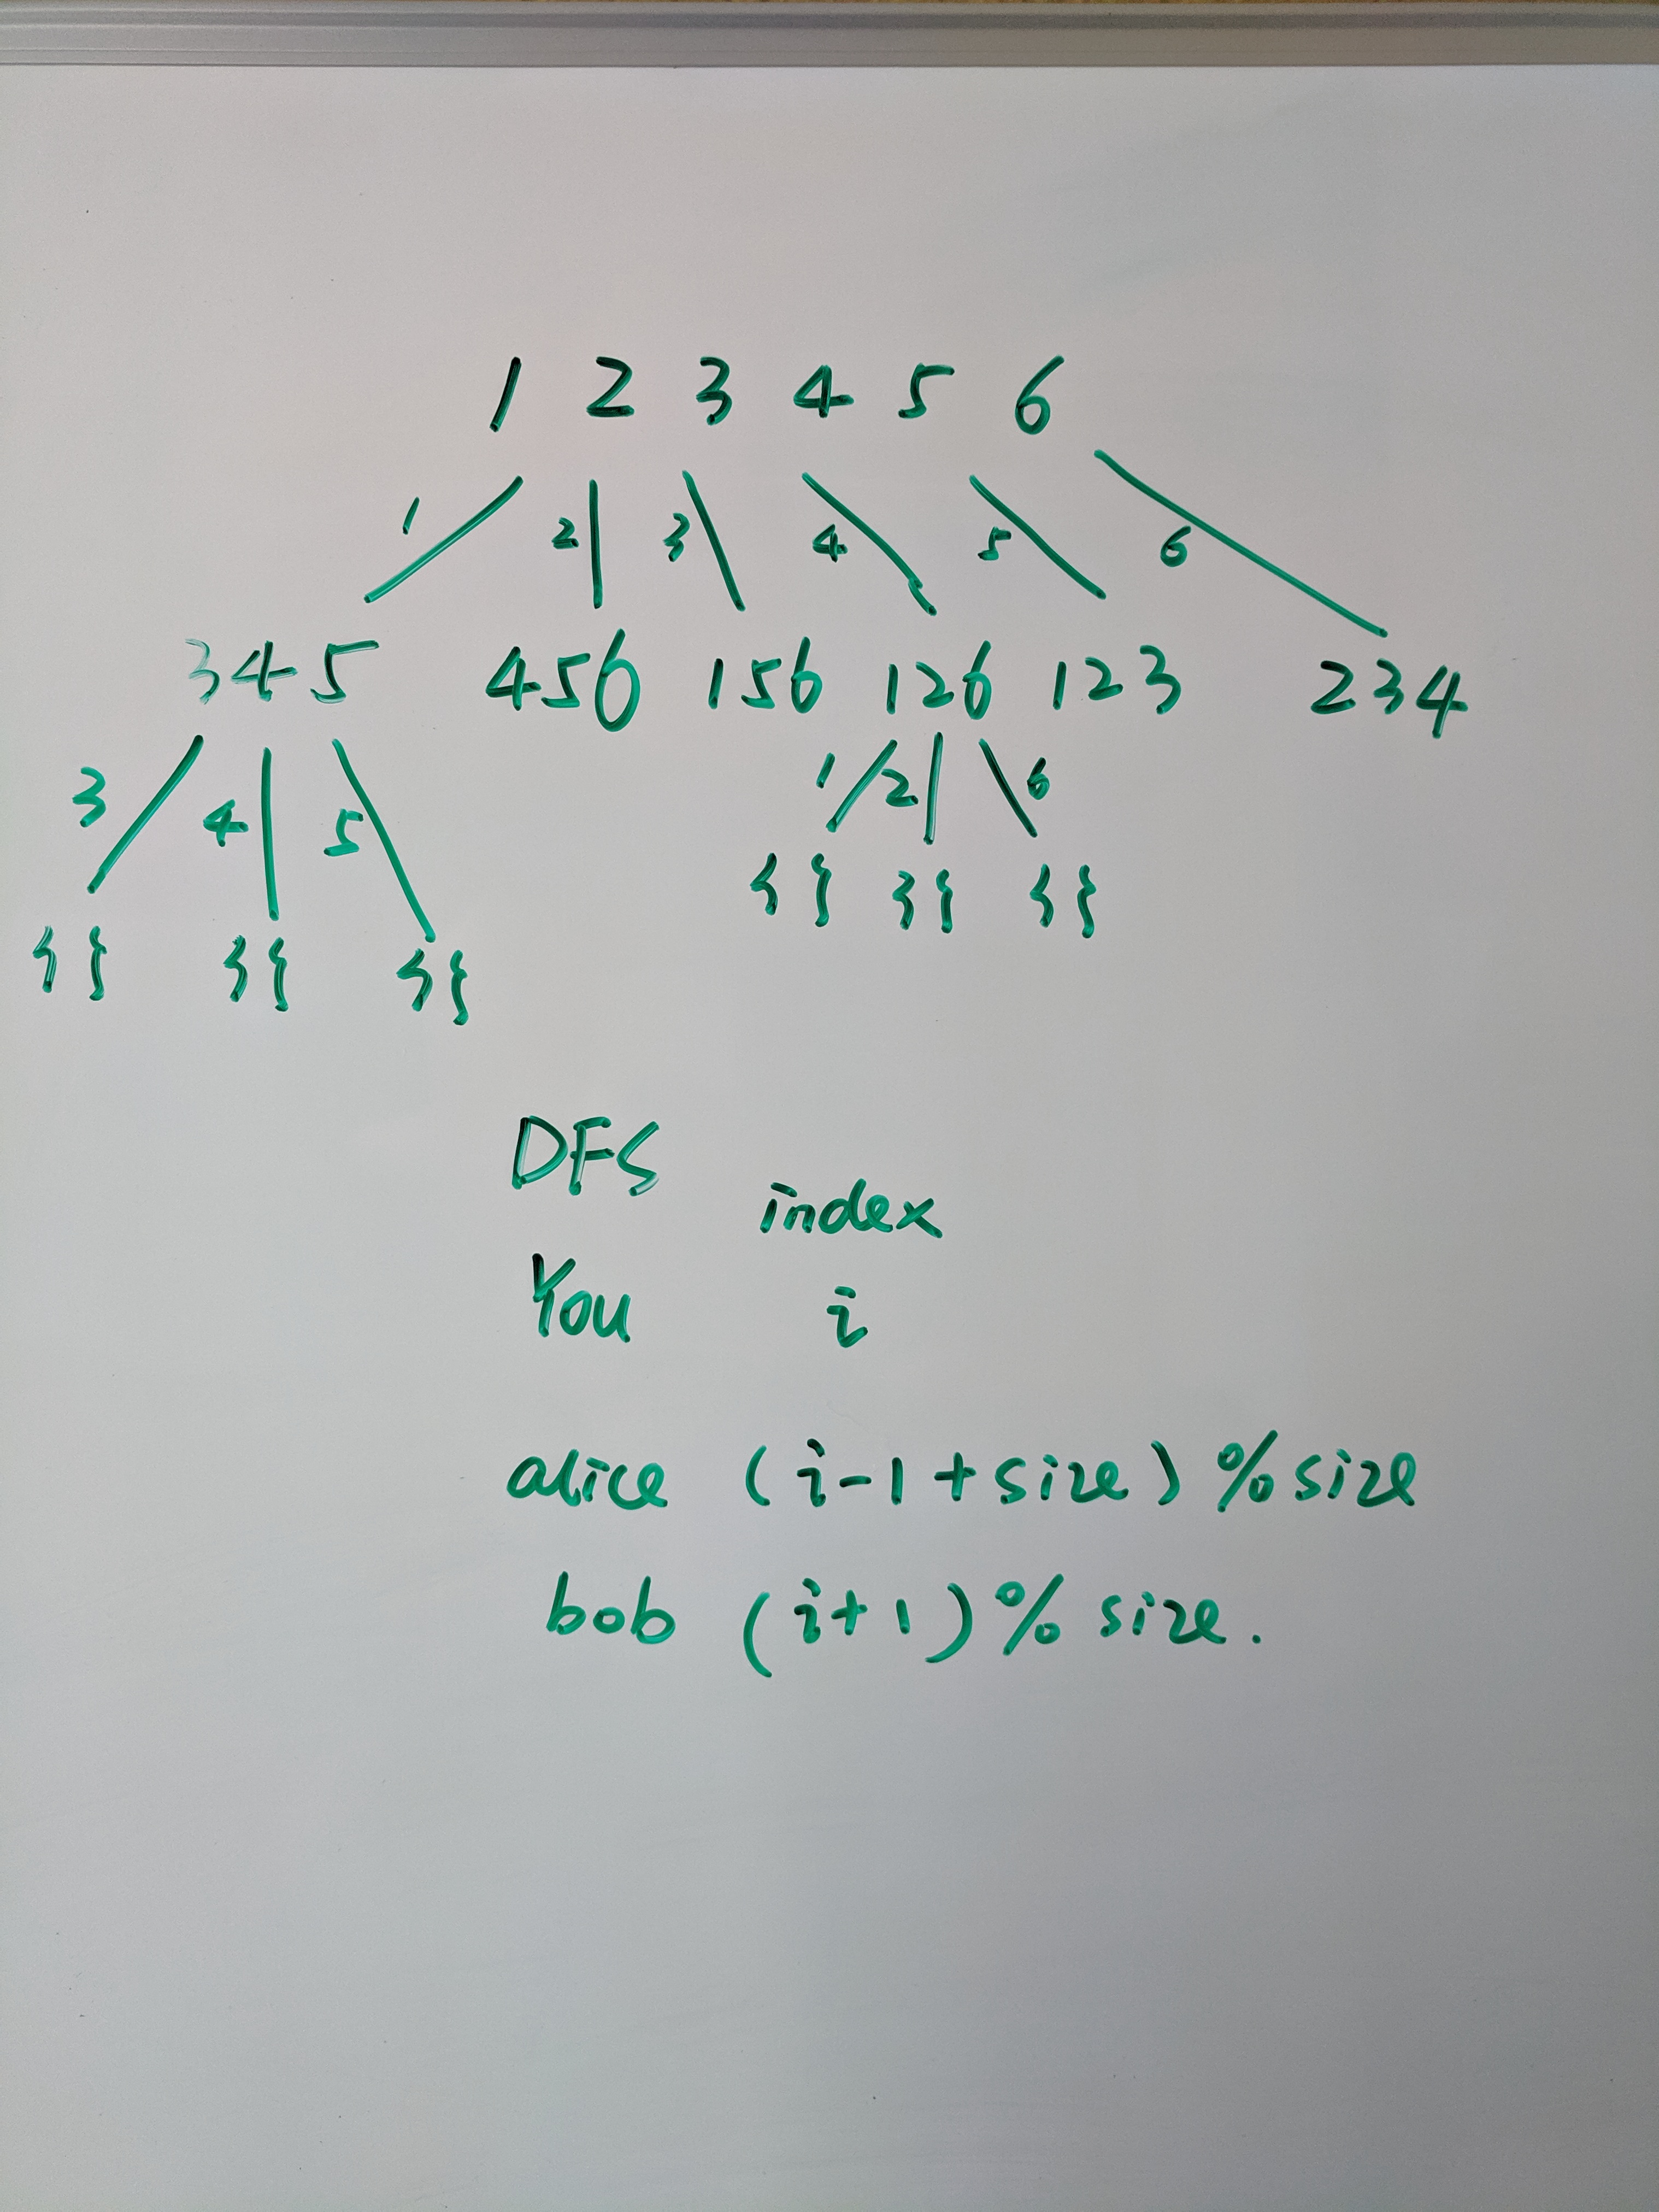 1 2 3 4 5 6
1 2 3 4 5 6
345 456 156 126 123 234
3 4 5 1 2 6
{} {} {} {} {} {}
DFS index
You i
alice (i-1+size)%size
bob (i+1)%size.